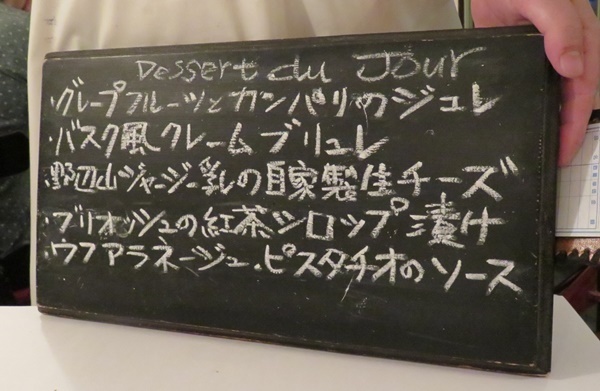 Dessert du Jour
・グレープフルーツとカンパリのジュレ
・バスク風クレームブリュレ
・野辺山ジャージー乳の自家製生チーズ
・ブリオッシュの紅茶シロップ漬け
・ウフアラネージュ・ピスタチオのソース